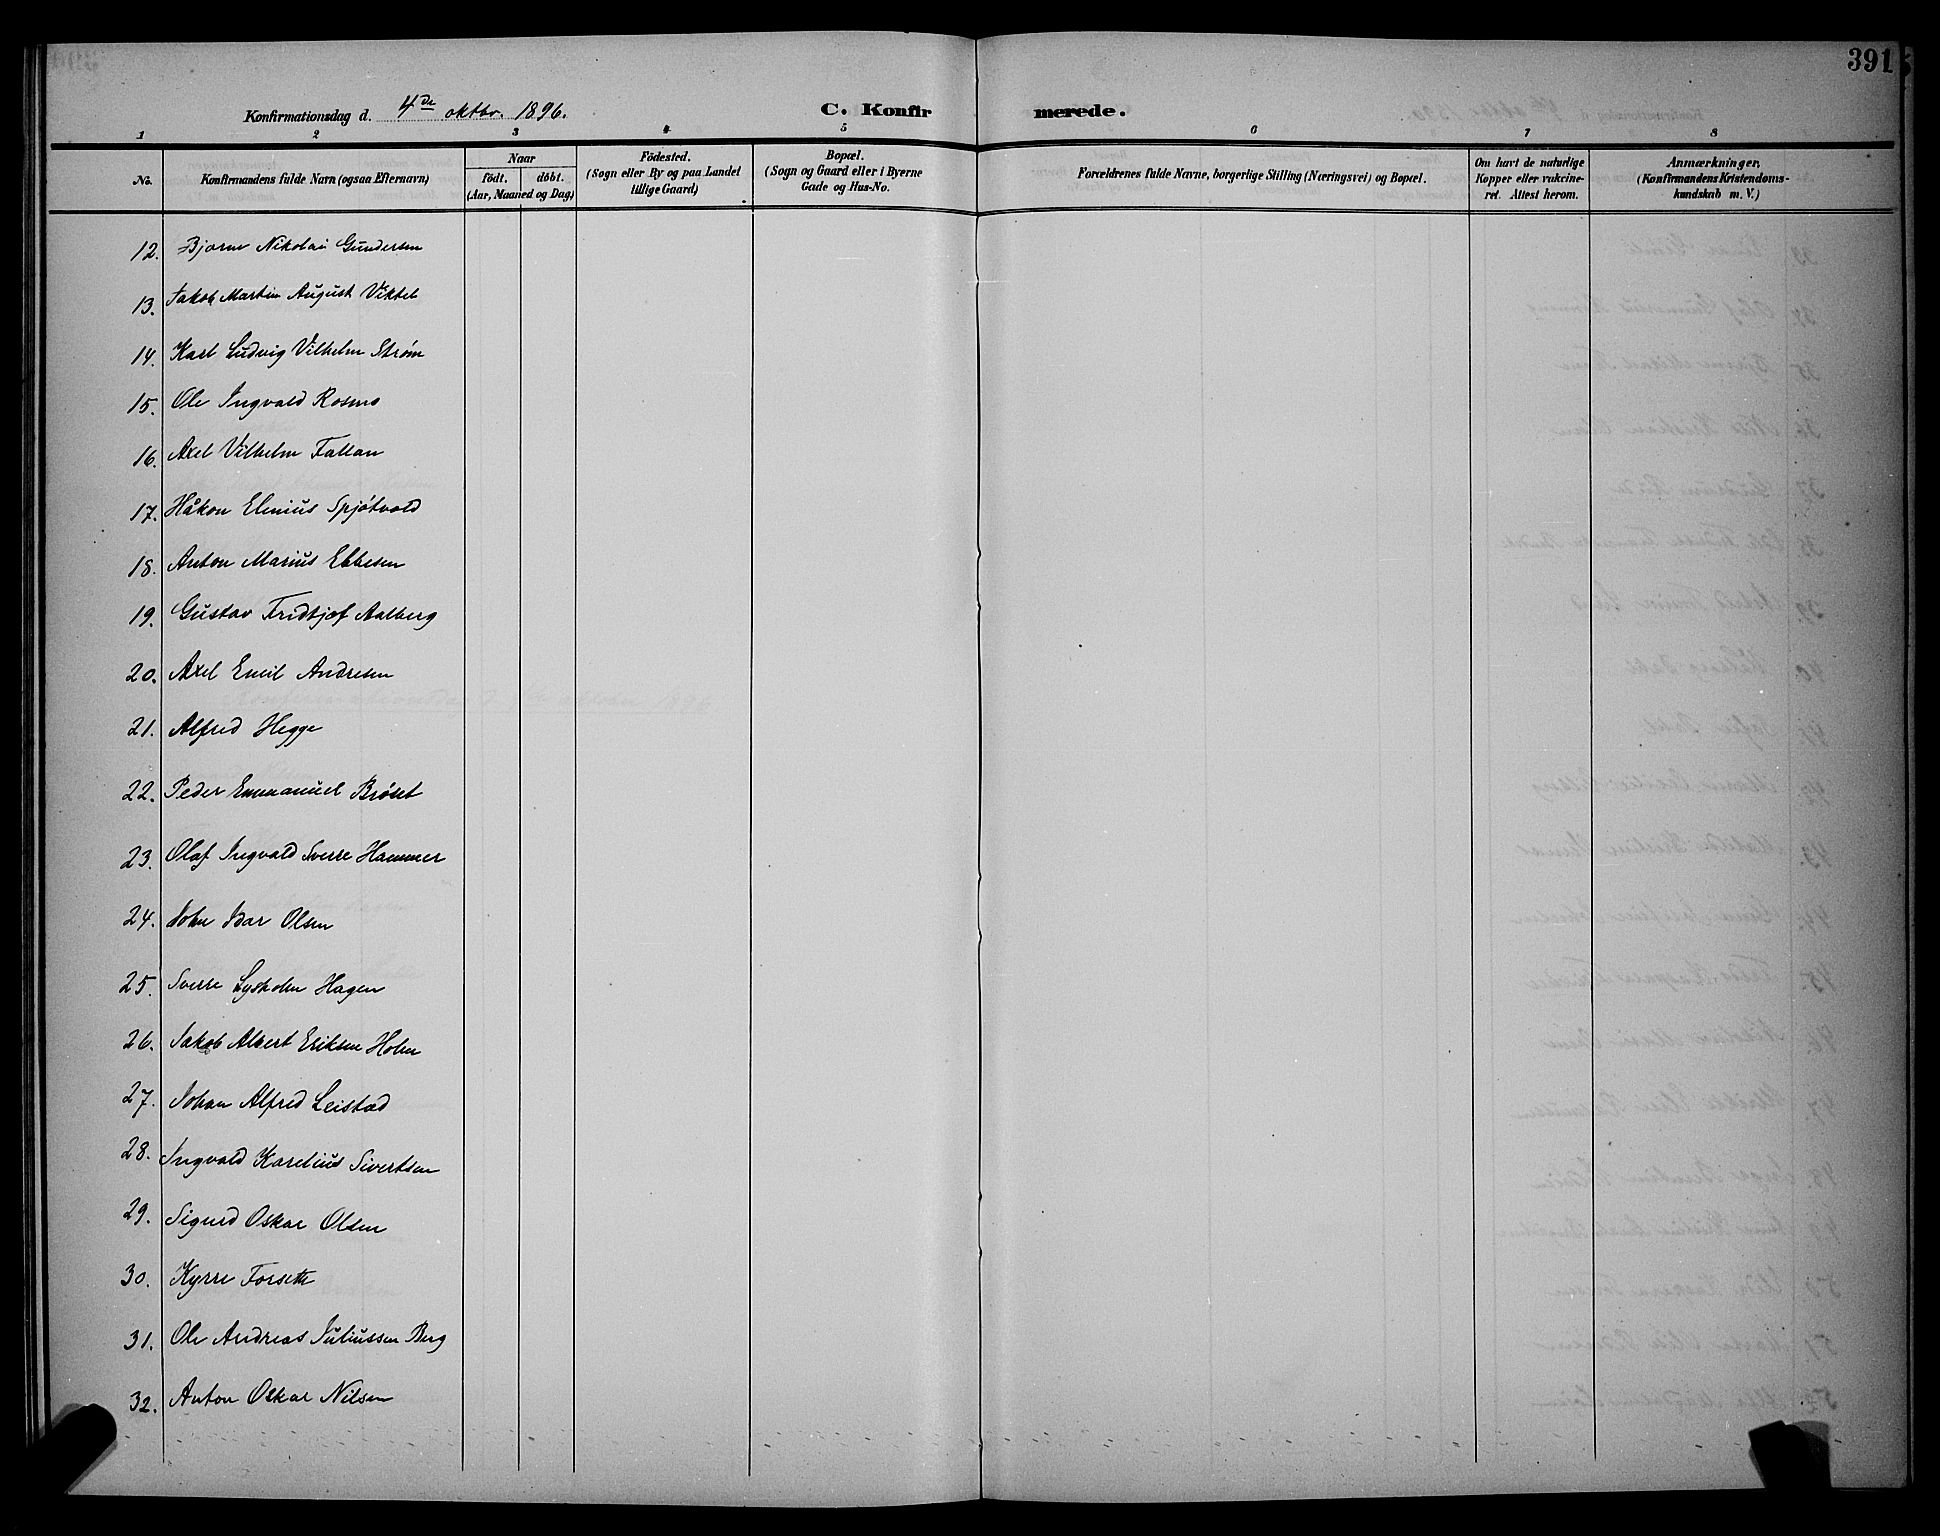 391
Konfirmationsdag d. 4de oktbr. 1896.
C. Konfirmerede.
1 2 3 4 5 6 7 8
No.
Konfirmandens fulde Navn (ogsaa Efternavn)
Naar
födt. döbt.
(Aar, Maaned og Dag)
Födested.
(Sogn eller By og paa Landet
tillige Gaard)
Bopæl.
(Sogn og Gaard eller i Byerne
Gade og Hus-No.
Forældrenes fulde Navne, borgerlige Stilling (Næringsvei) og Bopæl.
Om havt de naturlige
Kopper eller vakcine-
ret. Attest herom.
Anmærkninger,
(Konfirmandens Kristendoms-
kundskab m. V.)
12. Bjarne Nikolai Gundersen
13. Jakob Martin August Viktel
14. Karl Ludvig Vilhelm Strøm
15. Ole Ingvald Rosmo
16. Axel Vilhelm Fallan
17. Håkon Elenius Spjøtvold
18. Anton Marius Ebbesen
19. Gustav Fridtjof Aalberg
20. Axel Emil Andresen
21. Alfred Hegge
22. Peder Emmanuel Brøset
23. Olaf Ingvald Sverre Hammer
24. John Idar Olsen
25. Sverre Lysholm Hagen
26. Jakob Albert Eriksen Holm
27. Johan Alfred Leistad
28. Ingvald Karelius Sivertsen
29. Sigurd Oskar Olsen
30. Kyrre Forseth
31. Ole Andreas Juliussen Berg
32. Anton Oskar Nilsen